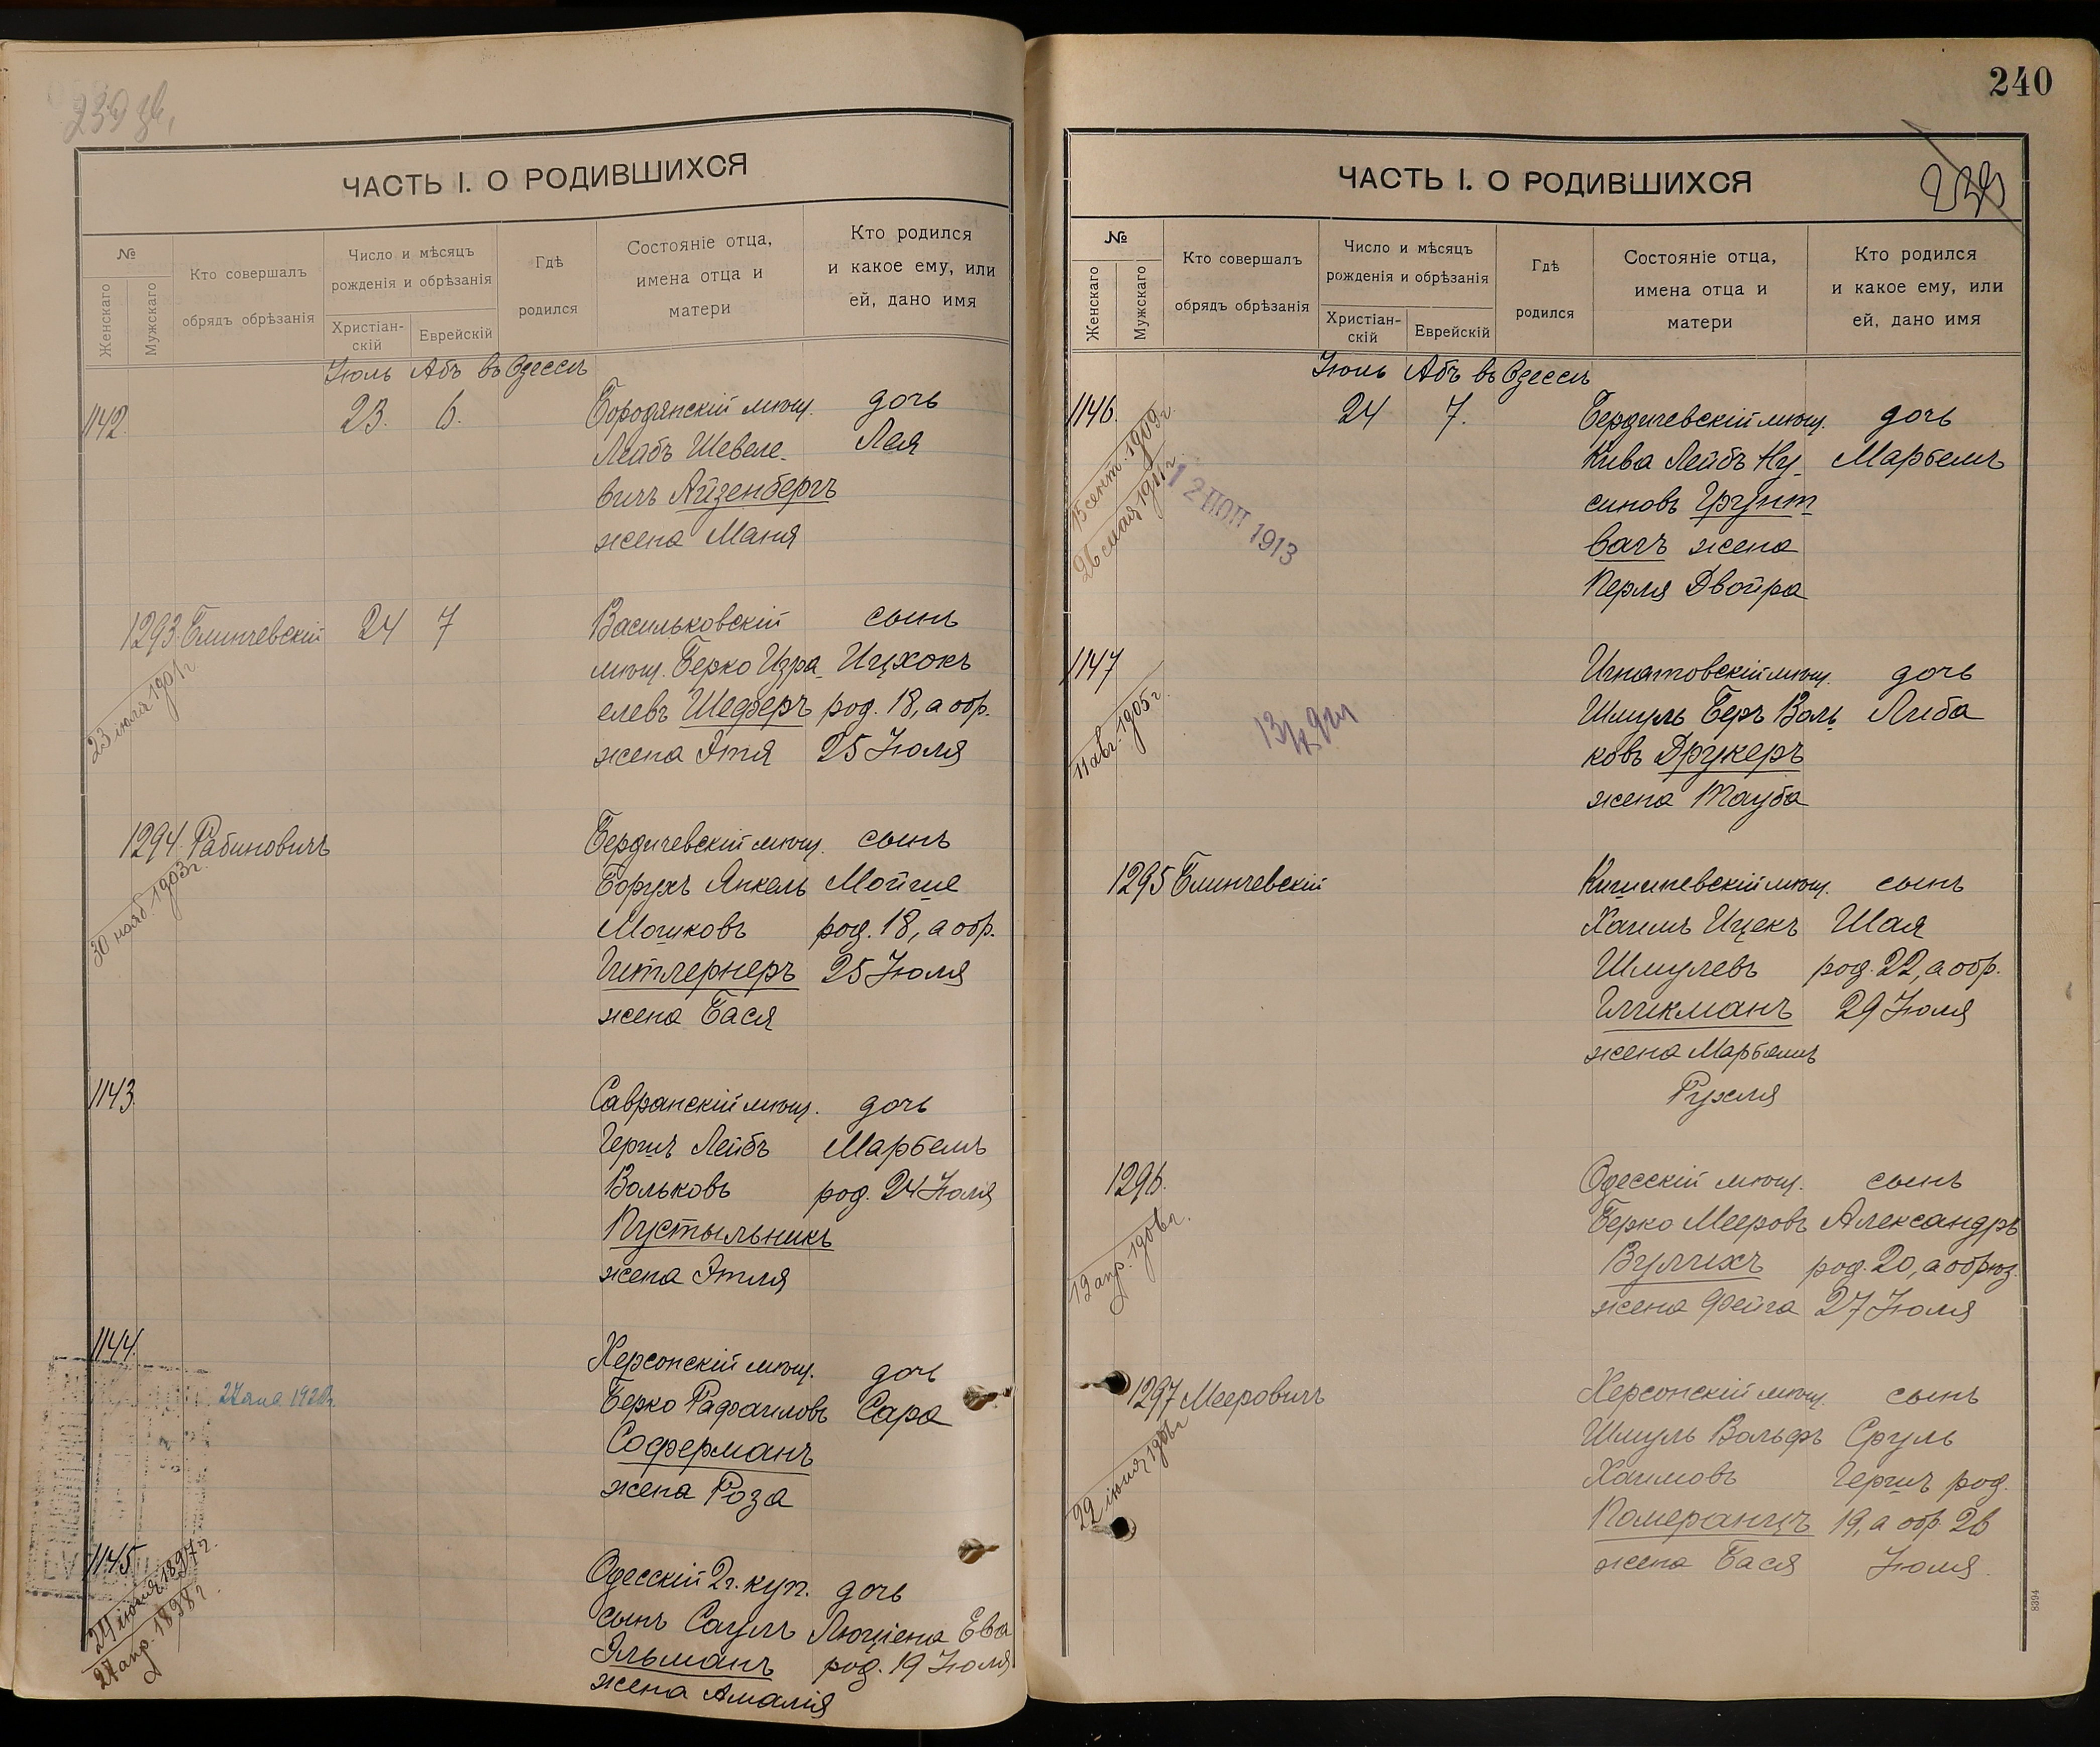 239 зв,
ЧАСТЬ I. О РОДИВШИХСЯ
№
Женскаго
Мужскаго
Кто совершалъ
обрядъ обрѣзанія
Число и мѣсяцъ
рожденія и обрѣзанія
Христіан-
скій
Еврейскій
Гдѣ
родился
Состояніе отца,
имена отца и
матери
Кто родился
и какое ему, или
ей, дано имя
Іюль Абъ въ Одессѣ
1142. 23. 6. Бородянскій мѣщ. дочь
Лейбъ Шевеле- Лея
вичъ Айзенбергъ
жена Маня
1293. Блинчевскій 24 7 Васильковскій сынъ
мѣщ. Берко Изра- Ицхокъ
елевъ Шедберъ род. 18, а обр.
жена Этя 25 Іюля
23 іюля 1901 г.
1294. Рабиновичъ Бердичевскій мѣщ. сынъ
Борухъ Янкель Мойше
Мошковъ род. 18, а обр.
Гитлернеръ 25 Іюля
жена Бася
30 нояб. 1903 г.
1143. Савранскій мѣщ. дочь
Гершъ Лейбъ Марьемъ
Вольковъ род. 24 Іюля
Пустыльникъ
жена Этля
1144. Херсонскій мѣщ. дочь
Берко Рафаиловъ Сара
Соферманъ
жена Роза
1145 Одесскій 2 г. куп. дочь
сынъ Саулъ Люціена Ева
Эльманъ род. 19 Іюля
жена Амалія
24 іюня 1897 г.
27 апр. 1898 г.
240
ЧАСТЬ I. О РОДИВШИХСЯ
№
Женскаго
Мужскаго
Кто совершалъ
обрядъ обрѣзанія
Число и мѣсяцъ
рожденія и обрѣзанія
Христіан-
скій
Еврейскій
Гдѣ
родился
Состояніе отца,
имена отца и
матери
Кто родился
и какое ему, или
ей, дано имя
Іюль Абъ въ Одессѣ
1146. 24 7. Бердичевскій мѣщ. дочь
Кива Лейбъ Ну- Марьемъ
синовъ Грунт
вагъ жена
Перля Двойра
15 сент. 1909 г.
26 мая 1911 г.
1913
1147 Игнатовскій мѣщ. дочь
Шмуль Беръ Воль- Либа
ковъ Друкеръ
жена Тауба
11 авг. 1905 г.
1295 Блинчевскій Кишиневскій мѣщ. сынъ
Хаимъ Ицекъ Шая
Шмулевъ род. 22, а обр.
Гликманъ 29 Іюля
жена Марьемъ
Рухля
1296. Одесскій мѣщ. сынъ
Берко Мееровъ Александръ
Вулихъ род. 20, а обрѣз.
жена Фейга 27 Іюля
12 апр. 1906 г.
1297 Мееровичъ Херсонскій мѣщ. сынъ
Шмуль Вольфъ Сруль
Хаимовъ Гершъ род.
Померанцъ 19, а обр. 26
жена Бася Іюля.
22 іюня 1906 г.
8394